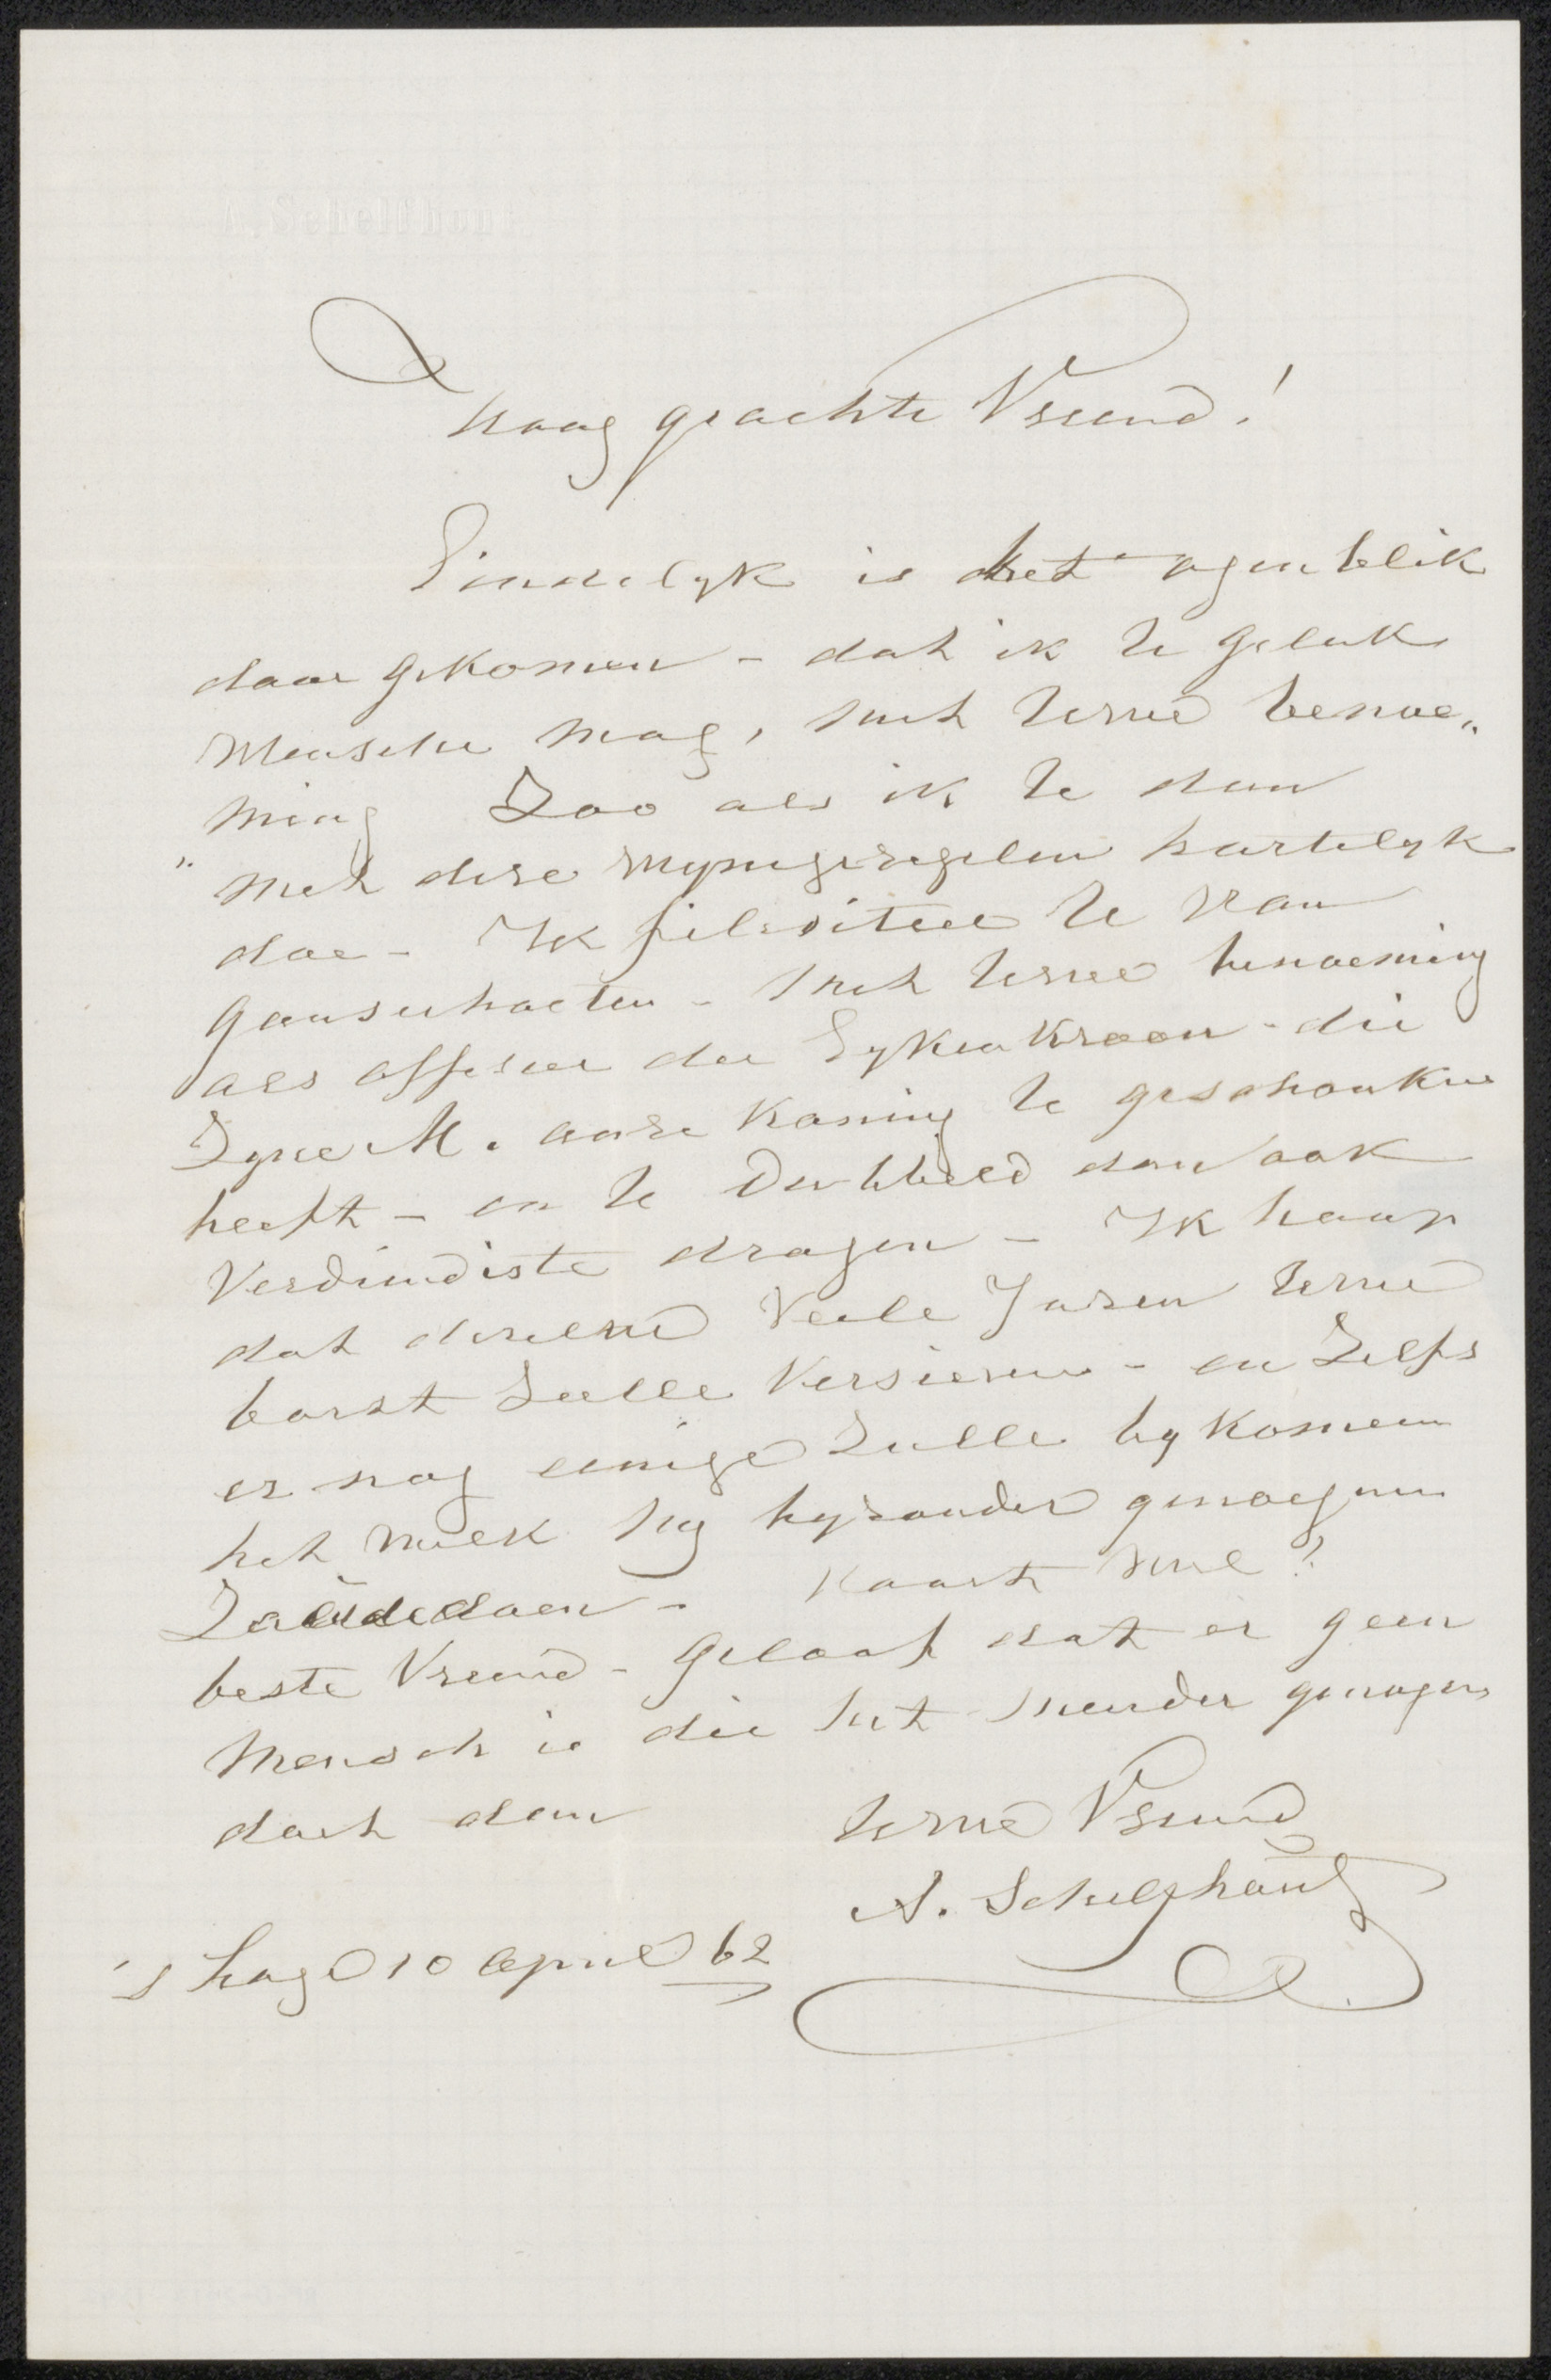 A. Schelfhout
Hoog geachte Vriend!
Eindelyk is het ogenblik
daar gekomen - dat ik U geluk
wensche mag, met Uwe benoe„
„ming Zoo als ik U dan
met dese wynige regelen hartelyk
doe - Ik feliciteer U van
ganscher harten - met Uwe benoeming
als officier der Eyken Kroon - die
Zyne M. onse Koning U geschonken
heeft - en U Dubbeld dan ook
Verdiendiste dragen - Ik hoop
dat deselve Veele Jaren Uwe
borst Zulle Versieren - en Zelfs
er nog eenige Zulle by komen
het welk my bysonder genoegen
Zoude doen - Vaart wel!
beste Vriend - geloof dat er geen
mensch is die het meer der genoegen
doet dan
Uwe Vriend
A. Schelfhout
's Hage 10 April 62